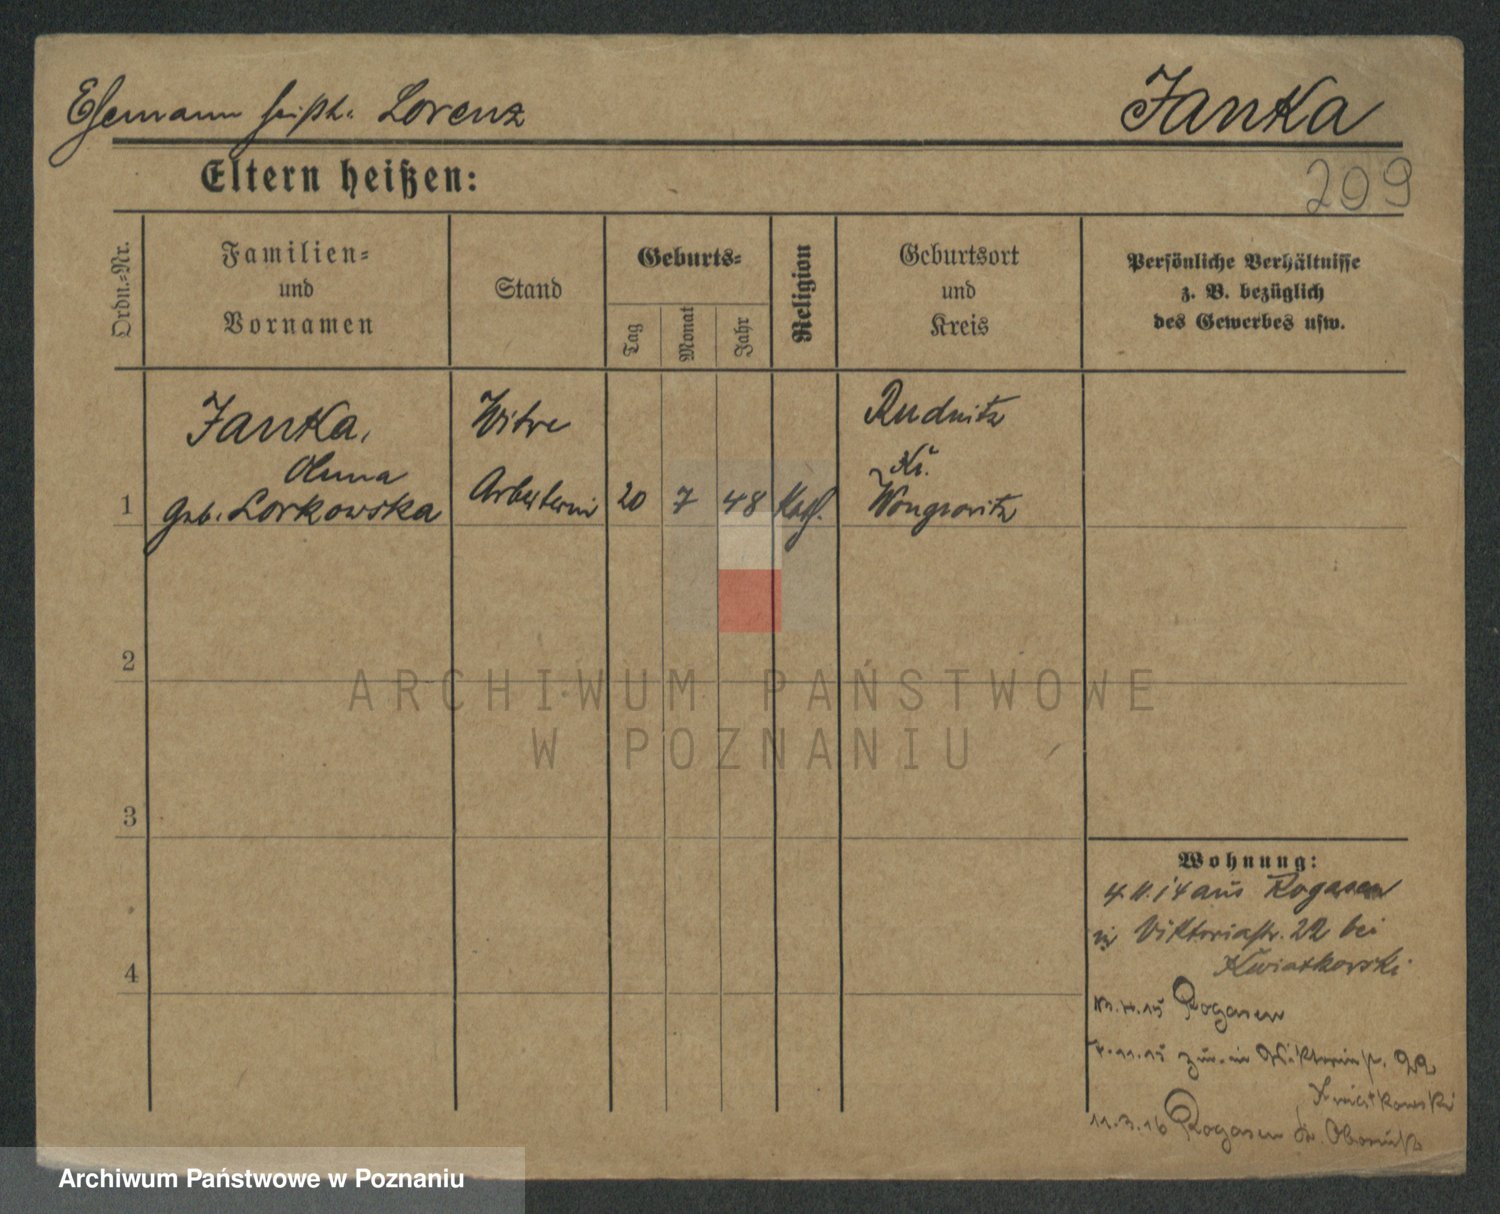 Ehemann heißt: Lorenz
Janka
Eltern heißen:
209
Ordn.-Nr.
Familien-
und
Vornamen
Stand
Geburts-
Tag
Monat
Jahr
Religion
Geburtsort
und
Kreis
Persönliche Verhältnisse
z. B. bezüglich
des Gewerbes usw.
1
Janka,
Anna
geb. Lorkowska
Witwe
Arbeiterin
20
7
48
Kath.
Rudnitz
Kr.
Wongrowitz
2
3
4
Wohnung:
4.11.14 aus Rogasen
in Viktoriastr. 22 bei
Kwiatkowski
Rogasen
zur. in Viktoriastr. 22
Kwiatkowski
11.3.16 Rogasen Kr. Obornik
ARCHIWUM PAŃSTWOWE
W POZNANIU
Archiwum Państwowe w Poznaniu